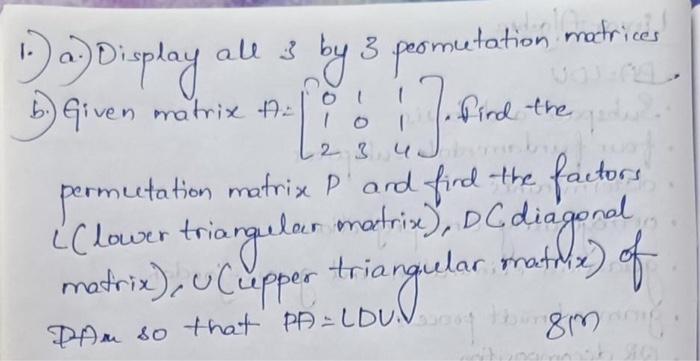 1.) a.) Display all 3 by 3 permutation matrices
b.) Given matrix A = [0 1 1
1 0 1
2 3 4]. Find the
permutation matrix P and find the factors
L (lower triangular matrix), D (diagonal
matrix), U (upper triangular matrix) of
PA so that PA = LDU. 8m